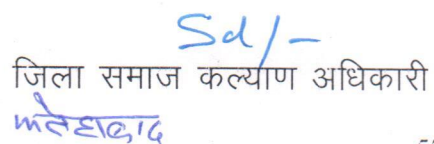 Sd/-
जिला समाज कल्याण अधिकारी
फतेहाबाद